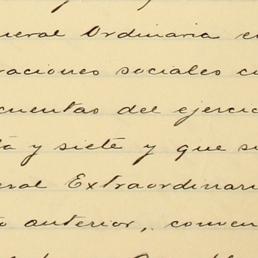 neral Ordinaria ce
raciones sociales co
cuentas del ejercic
ta y siete y que se
eral Extraordinari
o anterior, conven